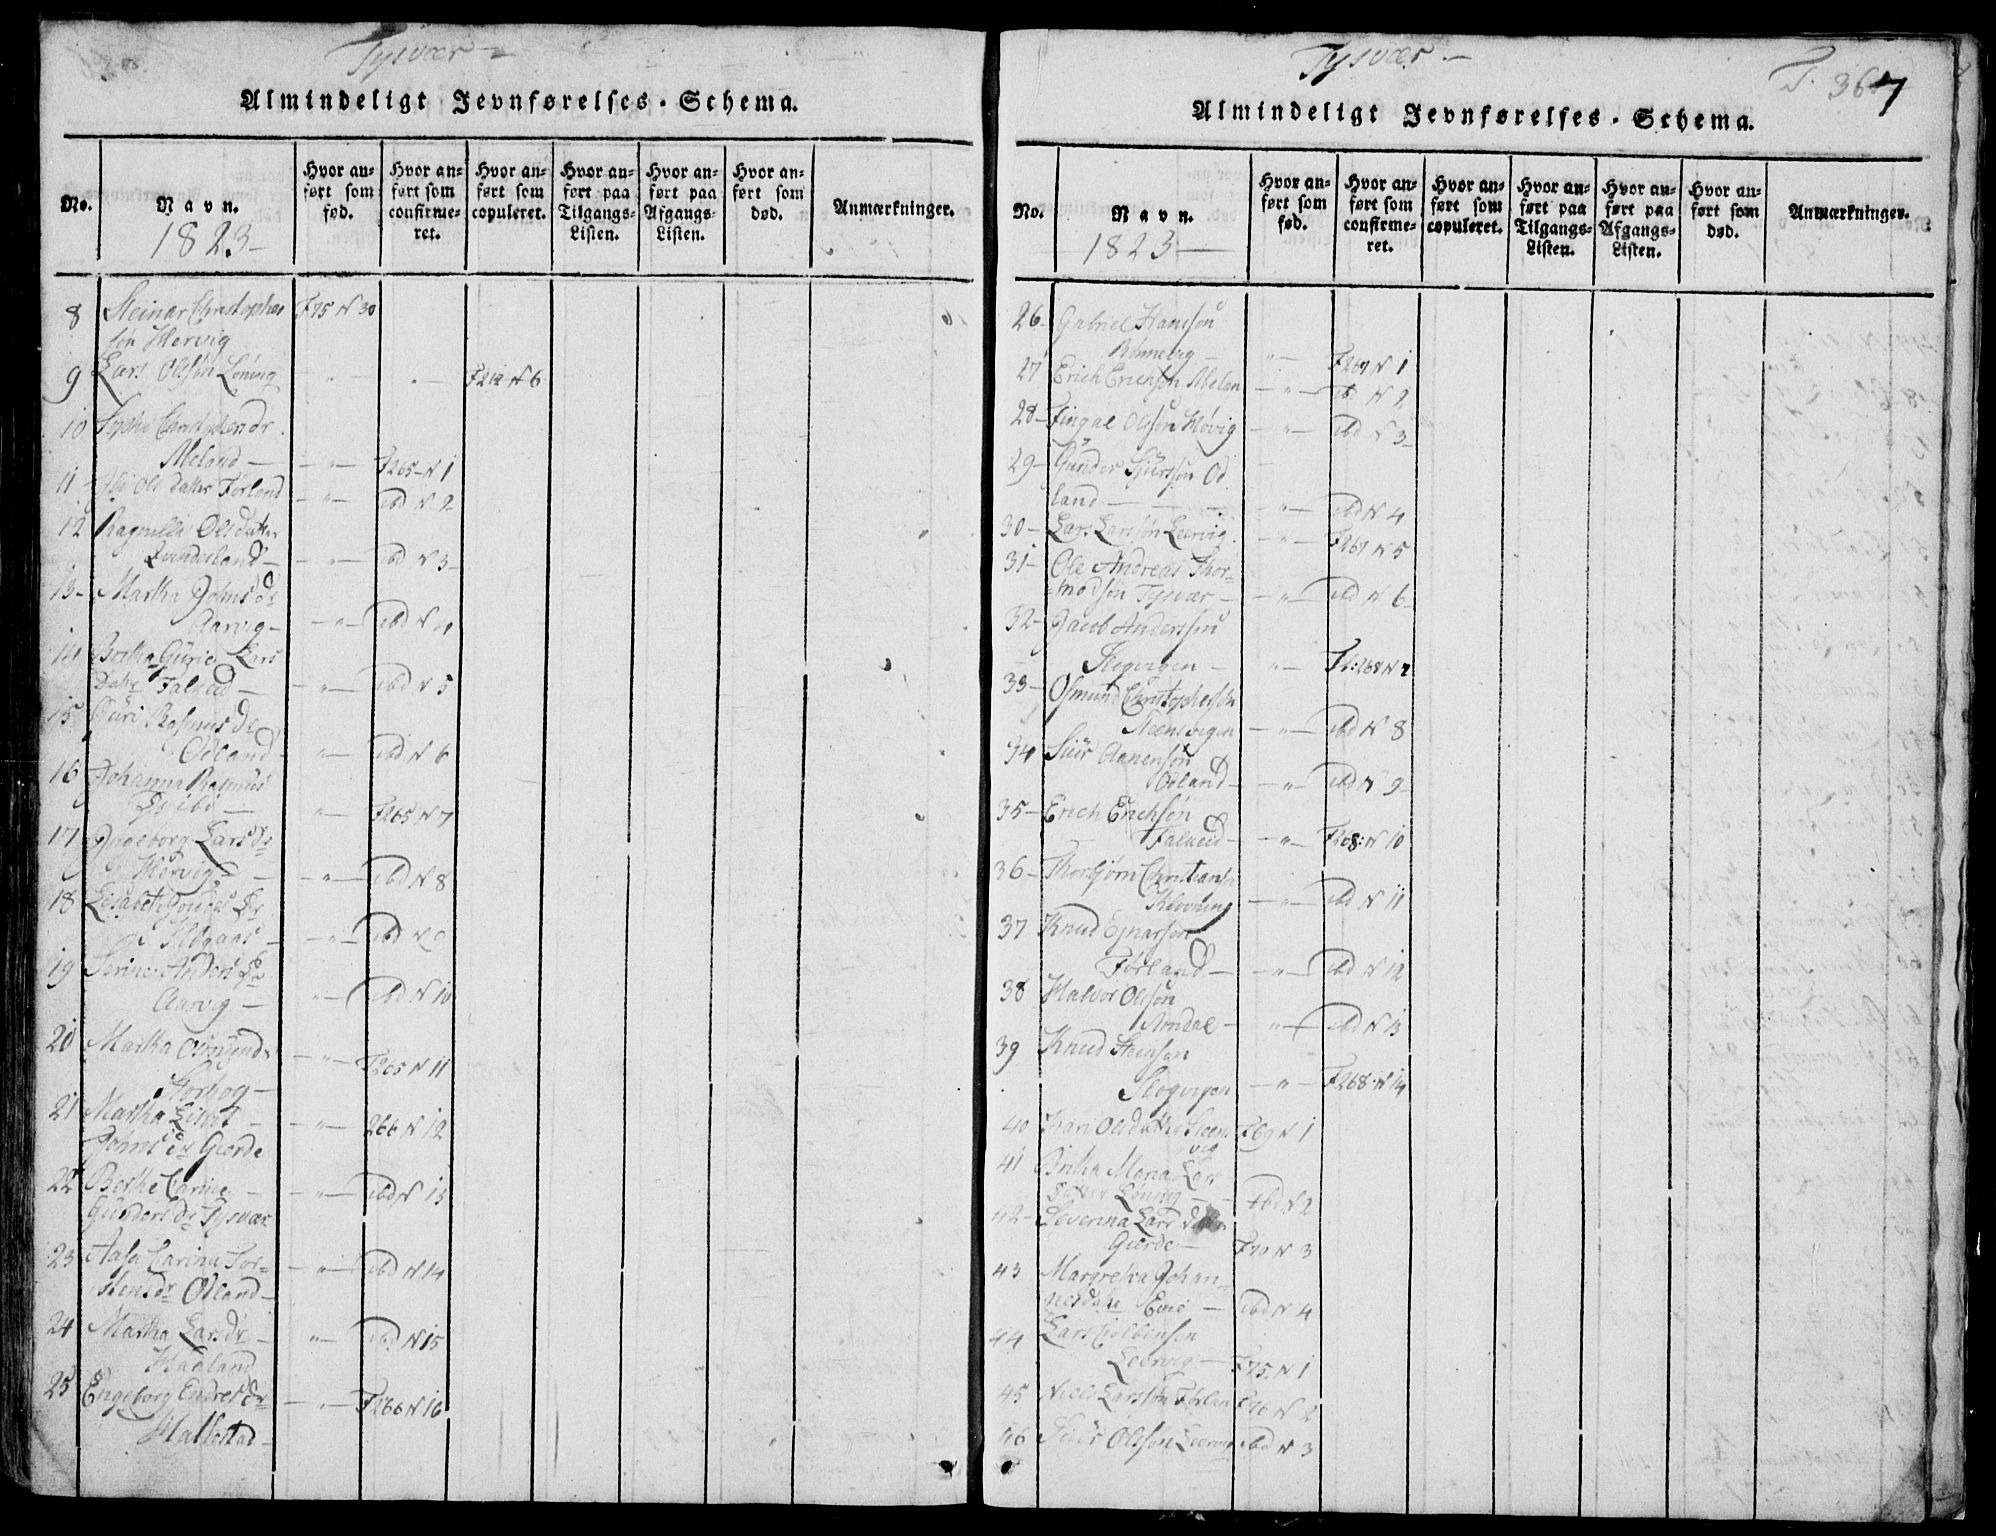 Tysvær
Almindeligt Jevnførelses-Schema.
No.
Navn.
1823
Hvor anført som fød.
Hvor anført som confirmeret.
Hvor anført som copuleret.
Hvor anført paa Tilgangs-Listen.
Hvor anført paa Afgangs-Listen.
Hvor anført som død.
Anmærkninger.
8 Steinar Christophers F75 N 30
søn Hervig
9 Lars Olsøn Løning " " F212 N 6
10
Meland " F265 N 1
11 Ols Datter Førland " ibd N 2
12 Ragnilla Olsdatter
" ibd N 3
13 Martha Johns dr
Aarvig " ibd N 4
14 Bertha Gurie Lars
Datr Falkeid " ibd N 5
15 Guri Rasmus Dr
Odland " ibd N 6
16 Johanna Rasmus
" F265 N 7
17 Ingeborg Lars dr
Hervig " ibd N 8
18 Lisabeth
" ibd N 9
19 Serine Anders Dr
Aarvig " ibd N 10
20 Martha Osmunds
" F265 N 11
21 Martha
Johns dr Gierde " 266 N 12
22 Berthe Carine " ibd N 13
Gunders dr Tysvær
23 Aasa Carina Tor- " ibd N 14
stensdr Odland
24 Martha Larsdr " ibd N 15
Haaland
25 Engeborg Endres dr " F266 N 16

Tysvær
F. 367
Almindeligt Jevnførelses-Schema.
No.
Navn.
1823
Hvor anført som fød.
Hvor anført som confirmeret.
Hvor anført som copuleret.
Hvor anført paa Tilgangs-Listen.
Hvor anført paa Afgangs-Listen.
Hvor anført som død.
Anmærkninger.
26 Gabriel Hansøn
Rønnevig " F267 N 1
27 Erich Erichsøn Melan " ib N 2
28 Fingal Olsøn Høvig " ibd N 3
29 Gunder Siursøn Od
land " ibd N 4
30 Lars Larsøn Leervig " F267 N 5
31 Ole Andreas Thor-
modsøn Tysvær " ibd N 6
32 Jacob Anderssøn
Skogvigen " Fl: 268 N 7
33 Osmund Christophersøn
Steensvigen " ibd N 8
34 Siur Aanensøn
Odland " ibd N 9
35 Erich Erichsøn
Falkeid " F268: N 10
36 Thorbjørn Christians
Kløvning " ibd N 11
37 Knud Ejnarsøn
Førland " ibd N 12
38 Halvor Olsøn
Amdal " ibd N 13
39 Knud Steensøn
Skogvigen " F268: N 14
40 Kari Olsdatter Steens F69 N 1
vig
41 Britha Maria Lars
Datter Løning ibd N 2
42 Severina Lars datter
Gierde F70 N 3
43 Margretha Johan-
nesdatr ibd N 4
44 Lars Colbensøn
Leervig F75 N 1
45 Niels Larssøn Førlan F76 N 2
46 Siur Olssøn Leervig ibd N 3